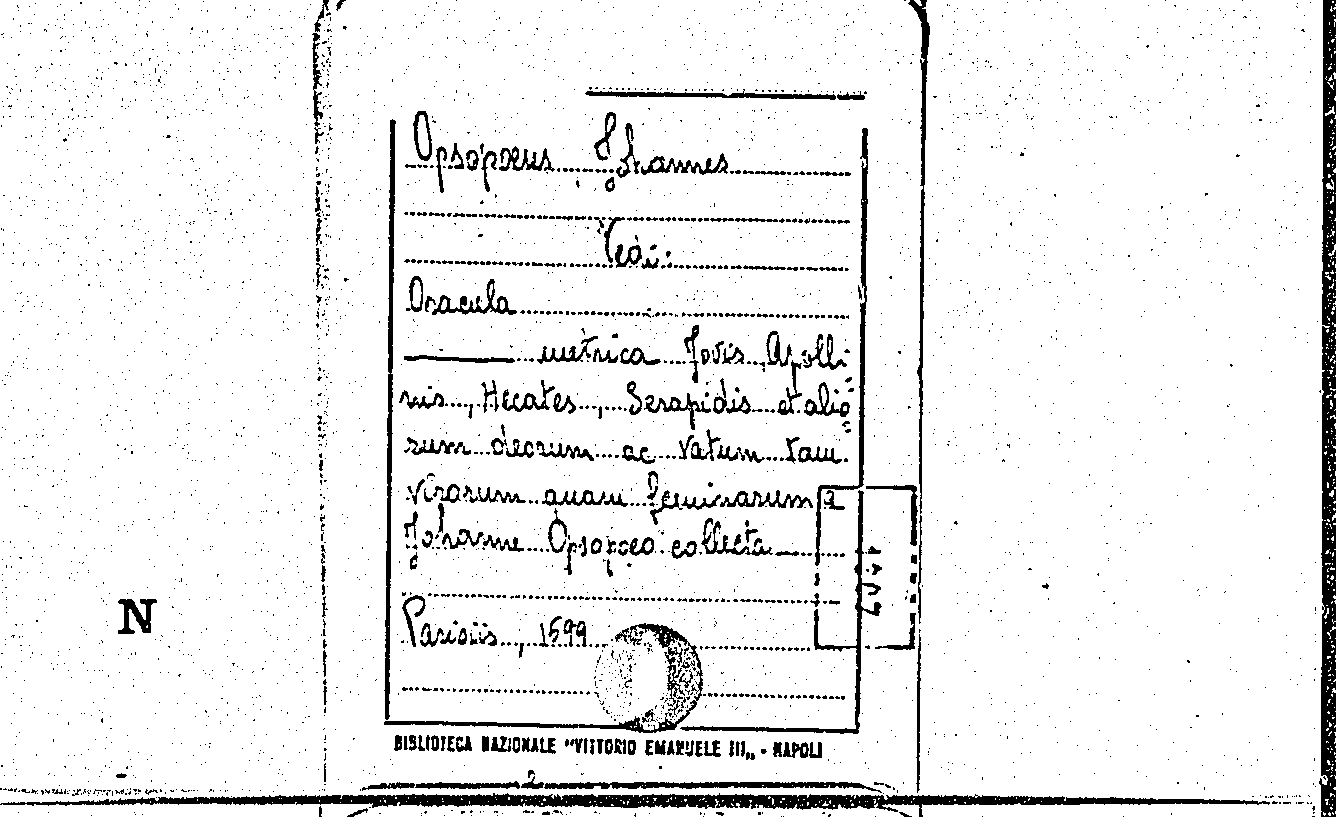 Opsopoeus, Johannes
Vedi:
Oracula
metrica Jovis, Apolli=
nis, Hecates, Serapidis et alio=
rum deorum ac vatum tam
virorum quam feminarum a
Johanne Opsopoeo collecta
Parisiis, 1599
N
BIBLIOTECA NAZIONALE "VITTORIO EMANUELE III„ - NAPOLI
2